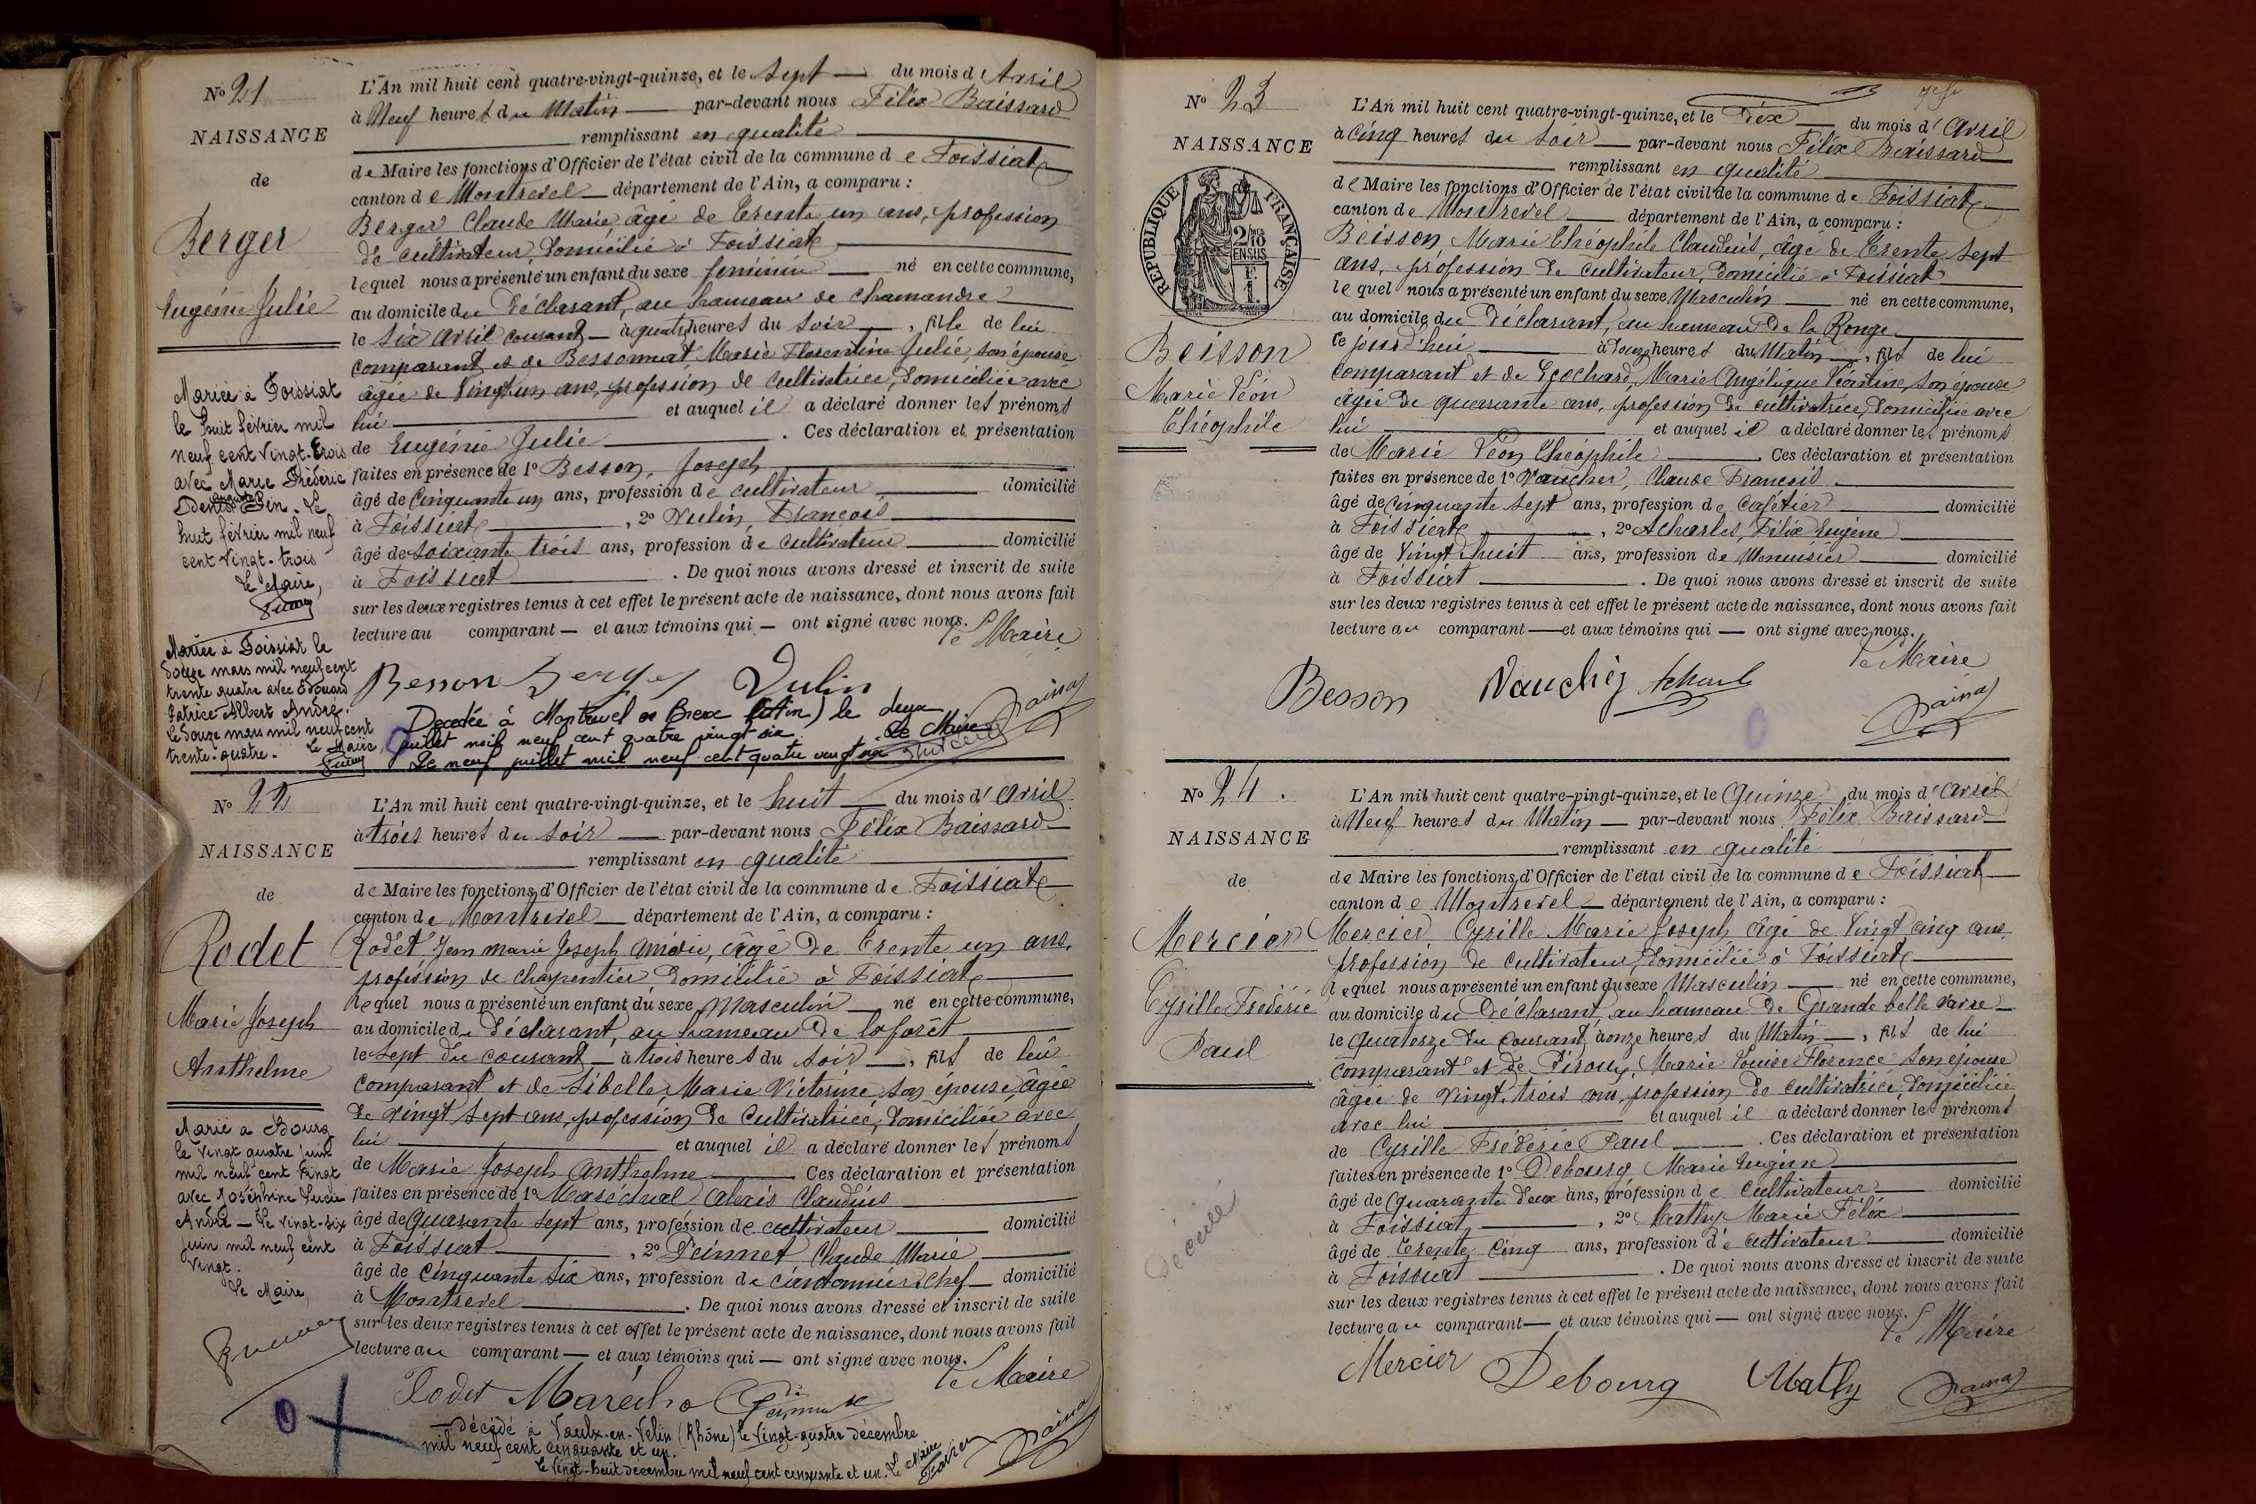 N° 21
NAISSANCE
de
Berger
Eugénie Julie
Mariée à Foissiat
le huit février mil
neuf cent vingt-trois
avec Marie Frédéric
Denis Pin. Le
huit février mil neuf
cent vingt-trois
Le Maire,
Mariée à Foissiat le
douze mars mil neuf cent
trente quatre avec Edouard
Patrice Albert André.
le douze mars mil neuf cent
trente-quatre. Le Maire,
L'An mil huit cent quatre-vingt-quinze, et le sept du mois d'Avril
à Neuf heures du Matin par-devant nous Félix Baissard
remplissant en qualité
de Maire les fonctions d'Officier de l'état civil de la commune de Foissiat
canton de Montrevel département de l'Ain, a comparu :
Berger Claude Marie, âgé de trente un ans, profession
de cultivateur, domicilié à Foissiat
lequel nous a présenté un enfant du sexe féminin né en cette commune,
au domicile du déclarant, au hameau de Chamandre
le six avril courant à quatre heures du soir, fille de lui
comparant et de Bessonnat, Marie Florentine Julie, son épouse
âgée de vingt un ans, profession de cultivatrice, domiciliée avec
lui et auquel il a déclaré donner les prénoms
de Eugénie Julie . Ces déclaration et présentation
faites en présence de 1° Besson, Joseph
âgé de cinquante un ans, profession de cultivateur domicilié
à Foissiat , 2° Vulin, François
âgé de soixante trois ans, profession de cultivateur domicilié
à Foissiat . De quoi nous avons dressé et inscrit de suite
sur les deux registres tenus à cet effet le présent acte de naissance, dont nous avons fait
lecture au comparant — et aux témoins qui — ont signé avec nous.
Le Maire
Besson Berger Vulin
Decedée à Montrevel en Bresse (Ain) le deux
juillet mil neuf cent quatre vingt six. Le Maire
Le neuf juillet mil neuf cent quatre vingt six
N° 22
NAISSANCE
de
Rodet
Marie Joseph
Anthelme
Marié à Bourg
le vingt quatre juin
mil neuf cent vingt
avec Joséphine Lucie
André — Le vingt-six
juin mil neuf cent
vingt.
Le Maire,
L'An mil huit cent quatre-vingt-quinze, et le huit du mois d'avril
à trois heures du soir par-devant nous Félix Baissard
remplissant en qualité
de Maire les fonctions d'Officier de l'état civil de la commune de Foissiat
canton de Montrevel département de l'Ain, a comparu :
Rodet, Jean Marie Joseph Amédée, âgé de trente un ans,
profession de charpentier domicilié à Foissiat
lequel nous a présenté un enfant du sexe masculin né en cette commune,
au domicile du déclarant, au hameau de la forêt
le sept du courant à trois heures du soir, fils de lui
comparant et de Sibelle, Marie Victorine, son épouse, âgée
de vingt sept ans, profession de cultivatrice, domiciliée avec
lui et auquel il a déclaré donner les prénoms
de Marie Joseph Anthelme Ces déclaration et présentation
faites en présence de 1° Maréchal Alexis Claudius
âgé de quarante sept ans, profession de cultivateur domicilié
à Foissiat , 2° Peinnet Claude Marie
âgé de cinquante six ans, profession de cantonnier chef domicilié
à Montrevel . De quoi nous avons dressé et inscrit de suite
sur les deux registres tenus à cet effet le présent acte de naissance, dont nous avons fait
lecture au comparant — et aux témoins qui — ont signé avec nous.
Le Maire
Rodet Marécha
décédé à Vaulx-en-Velin (Rhône) le vingt-quatre décembre
mil neuf cent cinquante et un.
Le vingt-huit décembre mil neuf cent cinquante et un. Le Maire
N° 23
NAISSANCE
RÉPUBLIQUE FRANÇAISE
2/10 EN SUS
Beisson
Marie Léon
Théophile
L'An mil huit cent quatre-vingt-quinze, et le dix du mois d'avril
à cinq heures du soir par-devant nous Félix Baissard
remplissant en qualité
de Maire les fonctions d'Officier de l'état civil de la commune de Foissiat
canton de Montrevel département de l'Ain, a comparu :
Beisson Marie Théophile Claudius, âgé de trente sept
ans, profession de cultivateur, domicilié à Foissiat
lequel nous a présenté un enfant du sexe Masculin né en cette commune,
au domicile du déclarant, au hameau de la Ronge
ce jourd'hui à douze heures du Matin, fils de lui
comparant et de Ecochard, Marie Angélique Léontine, son épouse
âgée de quarante ans, profession de cultivatrice, domiciliée avec
lui et auquel il a déclaré donner les prénoms
de Marie Léon Théophile . Ces déclaration et présentation
faites en présence de 1° Vaucher, Claude François
âgé de cinquante sept ans, profession de cafetier domicilié
à Foissiat , 2° Acharles, Félix Eugène
âgé de vingt huit ans, profession de Menuisier domicilié
à Foissiat . De quoi nous avons dressé et inscrit de suite
sur les deux registres tenus à cet effet le présent acte de naissance, dont nous avons fait
lecture au comparant — et aux témoins qui — ont signé avec nous.
Le Maire
Besson
N° 24.
NAISSANCE
de
Mercier
Cyrille Frédéric
Paul
décédé
L'An mil huit cent quatre-vingt-quinze, et le quinze du mois d'avril
à Neuf heures du Matin par-devant nous Félix Baissard
remplissant en qualité
de Maire les fonctions d'Officier de l'état civil de la commune de Foissiat
canton de Montrevel département de l'Ain, a comparu :
Mercier Cyrille Marie Joseph âgé de vingt cinq ans
profession de cultivateur, domicilié à Foissiat
lequel nous a présenté un enfant du sexe Masculin né en cette commune,
au domicile du déclarant, au hameau de Grande belle vavre
le quatorze du courant à onze heures du Matin, fils de lui
comparant et de Piroux, Marie Louise Florence son épouse
âgée de vingt trois ans, profession de cultivatrice, domiciliée
avec lui et auquel il a déclaré donner les prénoms
de Cyrille Frédéric Paul . Ces déclaration et présentation
faites en présence de 1° Debourg Marie Eugène
âgé de quarante deux ans, profession de cultivateur domicilié
à Foissiat , 2° Mathy Marie Félix
âgé de trente cinq ans, profession de cultivateur domicilié
à Foissiat . De quoi nous avons dressé et inscrit de suite
sur les deux registres tenus à cet effet le présent acte de naissance, dont nous avons fait
lecture au comparant — et aux témoins qui — ont signé avec nous.
Le Maire
Mercier Debourg Mathy